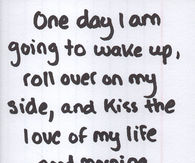 One day I am
going to wake up,
roll over on my
side, and kiss the
love of my life